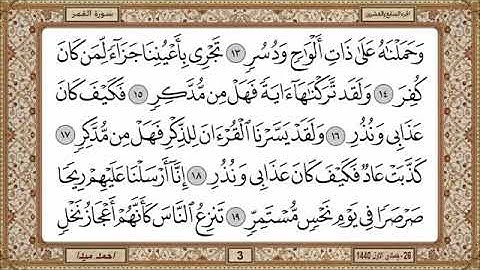 الجزء السابع والعشرون
سورة القمر
وَحَمَلْنَٰهُ عَلَىٰ ذَاتِ أَلْوَٰحٍ وَدُسُرٍ ١٣ تَجْرِى بِأَعْيُنِنَا جَزَآءً لِّمَن كَانَ
كُفِرَ ١٤ وَلَقَد تَّرَكْنَٰهَآ ءَايَةً فَهَلْ مِن مُّدَّكِرٍ ١٥ فَكَيْفَ كَانَ
عَذَابِى وَنُذُرِ ١٦ وَلَقَدْ يَسَّرْنَا ٱلْقُرْءَانَ لِلذِّكْرِ فَهَلْ مِن مُّدَّكِرٍ ١٧
كَذَّبَتْ عَادٌ فَكَيْفَ كَانَ عَذَابِى وَنُذُرِ ١٨ إِنَّآ أَرْسَلْنَا عَلَيْهِمْ رِيحًا
صَرْصَرًا فِى يَوْمِ نَحْسٍ مُّسْتَمِرٍّ ١٩ تَنزِعُ ٱلنَّاسَ كَأَنَّهُمْ أَعْجَازُ نَخْلٍ
26 - جمادى الأول 1440
3
احمد ميدا